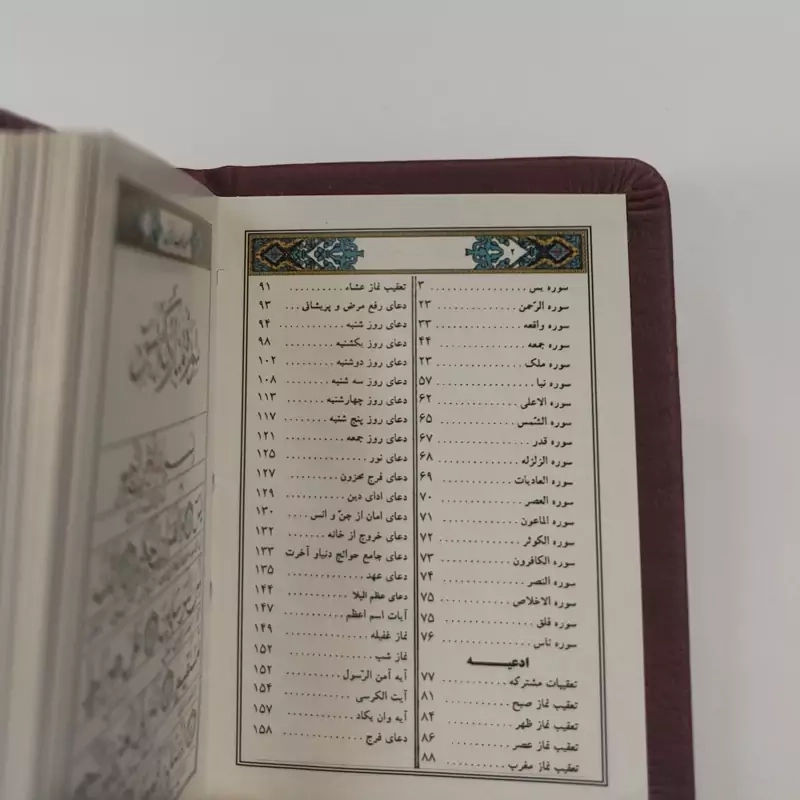 ۲
سوره یس ................ ۳
سوره الرّحمن ............ ۲۳
سوره واقعه ............. ۳۳
سوره جمعه ............. ۴۴
سوره ملک ............. ۲۳
سوره نبا ............. ۵۷
سوره الاعلی ............. ۶۲
سوره الشّمس ............. ۶۵
سوره قدر ............. ۶۷
سوره الزلزله ............. ۶۸
سوره العادیات ............. ۶۹
سوره العصر ............. ۷۰
سوره الماعون ............. ۷۱
سوره الکوثر ............. ۷۲
سوره الکافرون ............. ۷۳
سوره النصر ............. ۷۴
سوره الاخلاص ............. ۷۵
سوره فلق ............. ۷۵
سوره ناس ............. ۷۶
ادعیــه
تعقیبات مشترکه ............. ۷۷
تعقیب نماز صبح ............. ۸۱
تعقیب نماز ظهر ............. ۸۴
تعقیب نماز عصر ............. ۸۶
تعقیب نماز مغرب ............. ۸۸
تعقیب نماز عشاء .......... ۹۱
دعای رفع مرض و پریشانی... ۹۳
دعای روز شنبه ............ ۹۴
دعای روز یکشنبه .......... ۹۸
دعای روز دوشنبه .......... ۱۰۲
دعای روز سه شنبه ........ ۱۰۸
دعای روز چهارشنبه ........ ۱۱۳
دعای روز پنج شنبه ........ ۱۱۷
دعای روز جمعه ........... ۱۲۱
دعای نور ................ ۱۲۵
دعای فرج محزون .......... ۱۲۷
دعای ادای دین ........... ۱۲۹
دعای امان از جنّ و انس .... ۱۳۰
دعای خروج از خانه ....... ۱۳۲
دعای جامع حوائج دنیاو آخرت ۱۳۳
دعای عهد ............... ۱۳۵
دعای عظم البلا ........... ۱۴۴
آیات اسم اعظم ........... ۱۴۷
نماز غفیله .............. ۱۴۹
نماز شب ................ ۱۵۲
آیه آمن الرّسول .......... ۱۵۲
آیت الکرسی ............. ۱۵۴
آیه وان یکاد ............ ۱۵۷
دعای فرج .............. ۱۵۸